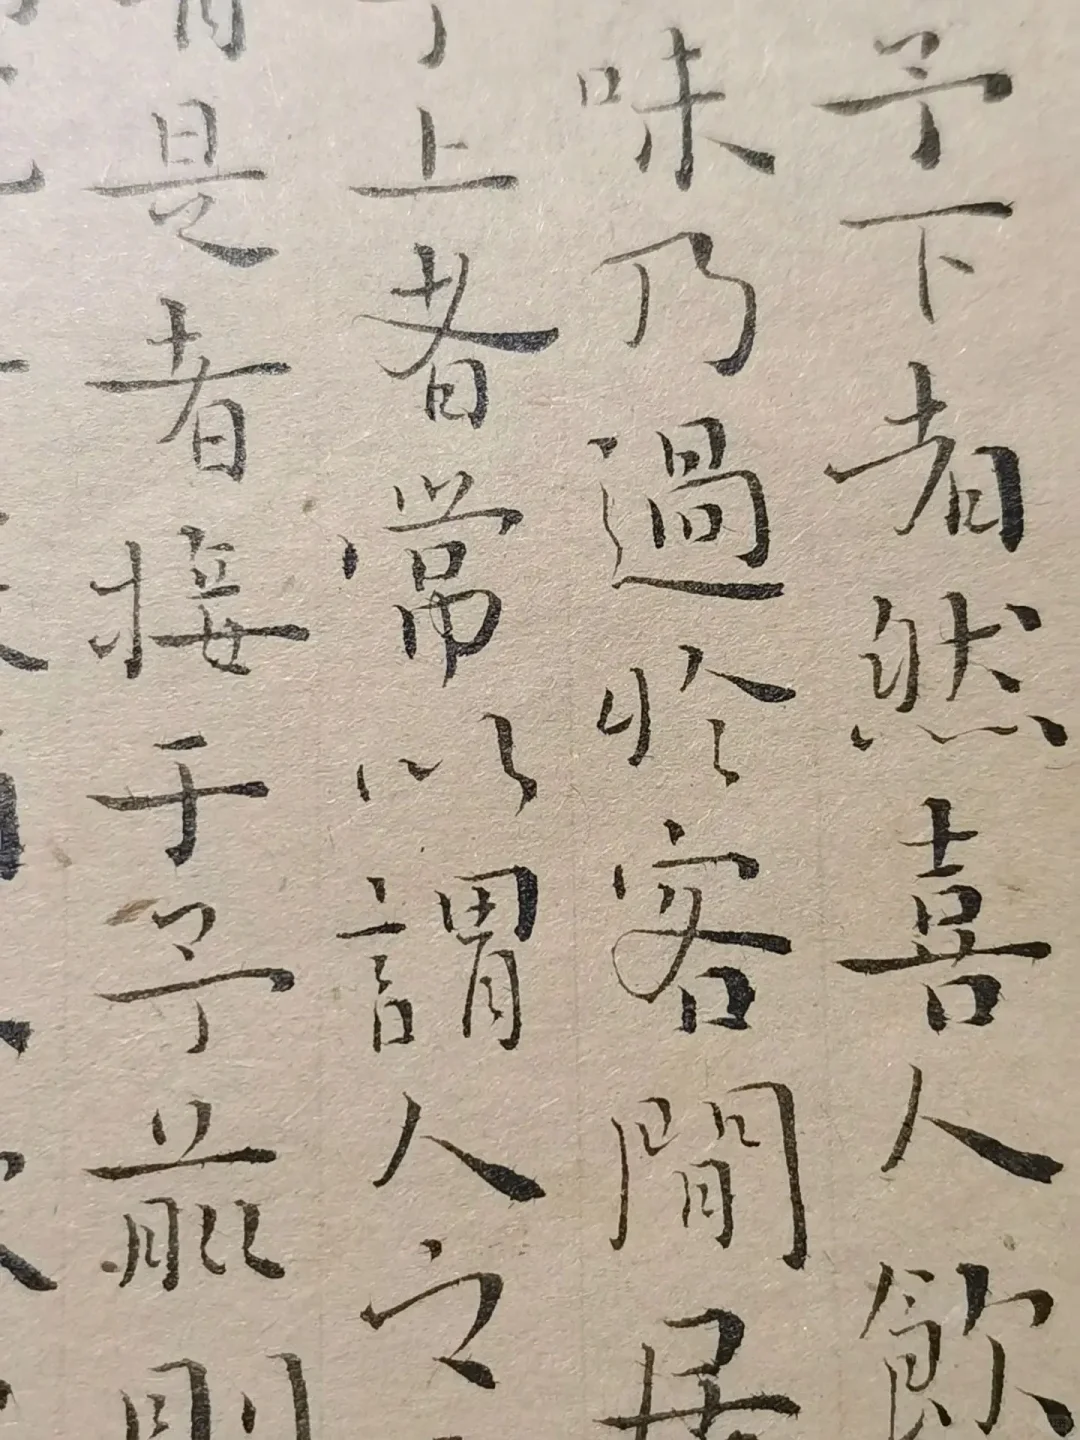 予下者然喜人飲
味乃過於客閒居
上者常以謂人之
是者接于予能則